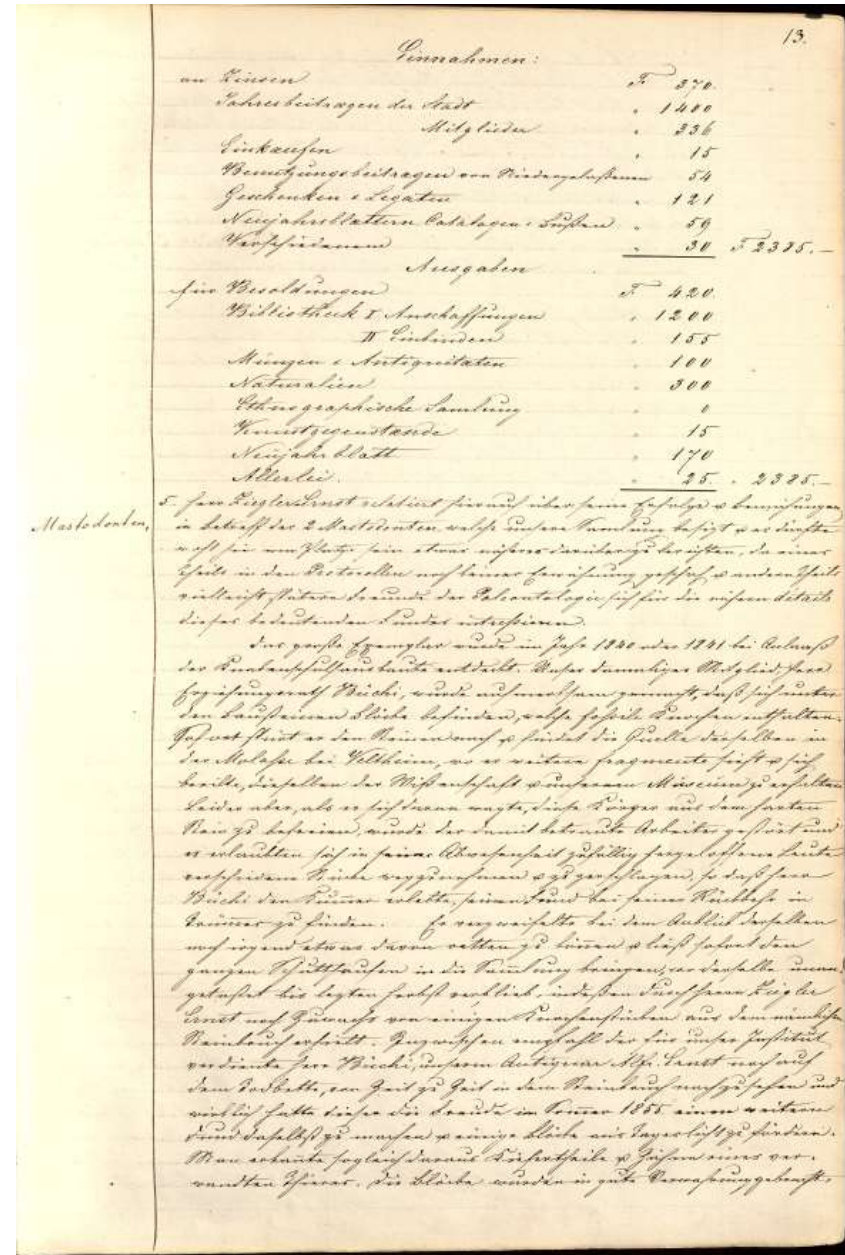 13.
Einnahmen:
an Zinsen F. 370.
Jahresbeiträgen der Stadt " 1400
Mitglieder " 336
Einkäufen " 15
Benutzungsbeitragen von Niedergelaßenen 54
Geschenken & Legaten " 121
Neujahrsblättern Catalogen & Bußen " 59
Verschiedenem " 30 F 2385.—
Ausgaben
für Besoldungen F. 420.
Bibliothek I Anschaffungen " 1200
II Einbinden " 155
Münzen & Antiquitäten " 100
Naturalien " 300
Ethnographische Samlung " 0
Kunstgegenstände " 15
Neujahrblatt " 170
Allerlei. " 25. " 2385.—
Mastodonten,
5. Herr Ziegler-Ernst relatiert hierauf über seine Erfolge & Bemühungen
in betreff der 2 Mastodonten welche unsere Samlung besizt & es dürfte
wohl hier am Platze sein etwas näheres darüber zu berichten, da eines
Theils in den Protocollen noch keiner Erwähnung geschah & andern Theils
vielleicht spätere Freunde der Paleontologie sich für die nähern détails
dieses bedeutenden Fundes interessieren.
Das große Exemplar wurde im Jahr 1840 oder 1841 bei Anlaß
der Knabenschulhausbaute entdeckt. Unser damaliges Mitglied, Herr
Erziehungsrath Büchi, wurde aufmerksam gemacht, daß sich unter
den Bausteinen Blöcke befinden, welche foßile Knochen enthalten.
Sofort spürt er den Steinen nach & findet die Quelle derselben in
der Molaße bei Veltheim, wo er weitere fragmente sieht & sich
beeilte, dieselben der Wißenschaft & unserem Museum zu erhalten.
Leider aber, als er sich daran wagte, diese Körper aus dem harten
Stein zu befreien, wurde der damit betraute Arbeiter gestört und
es erlaubten sich in seiner Abwesenheit zufällig hergeloffene Leute
verschiedene Stücke wegzunehmen & zu zerschlagen, so daß Herr
Büchi den Kum̅er erlebte, seinen Fund bei seiner Rückkehr in
Trüm̅er zu finden. Er verzweifelte bei dem Anblick derselben
noch irgend etwas davon retten zu können & ließ sofort den
ganzen Schutthaufen in die Sam̅lung bringen, wo derselbe unan-
getastet bis lezten Herbst verblieb, indeßen durch Herrn Ziegler
Ernst noch Zuwachs von einigen Knochenstücken aus dem nämlichen
Steinbruch erhielt. Inzwischen empfahl der für unser Institut
verdiente Herr Büchi, unserm Antiquar Alf. Ernst noch auf
dem Todbette, von Zeit zu Zeit in dem Steinbruch nachzusehen und
wirklich hatte dieser die Freude im Som̅er 1855 einen weitern
Fund daselbst zu machen & einige Blöcke ans Tageslicht zu fördern.
Man erkannte sogleich daraus Kiefertheile & Zähne eines ver-
wandten Thieres. Die Blöcke wurden in gute Verwahrung gebracht,